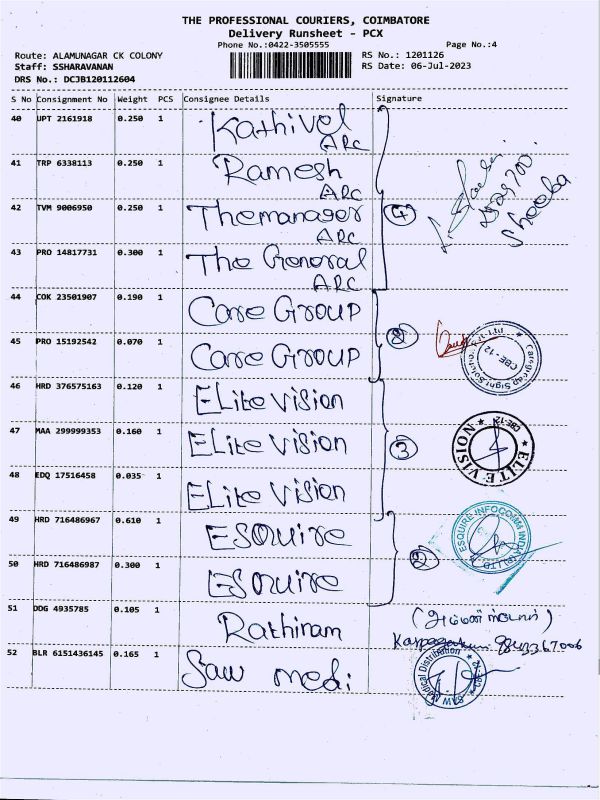 THE PROFESSIONAL COURIERS, COIMBATORE
Delivery Runsheet - PCX
Phone No.:0422-3505555 Page No.:4
Route: ALAMUNAGAR CK COLONY RS No.: 1201126
Staff: SSHARAVANAN RS Date: 06-Jul-2023
DRS No.: DCJB120112604
S No Consignment No Weight PCS Consignee Details Signature
40 UPT 2161918 0.250 1 Kathivel
ARC
41 TRP 6338113 0.250 1 Ramesh
ARC
42 TVM 9006950 0.250 1 Themanager 4
ARC
Sheeba
43 PRO 14817731 0.300 1 The General
ARC
44 COK 23501907 0.190 1 Care Group
2
45 PRO 15192542 0.070 1 Care Group
CBE-12
46 HRD 376575163 0.120 1 ELite Vision
47 MAA 299999353 0.160 1 ELite Vision 3
ELITE VISION
CBE-12
48 EDQ 17516458 0.035 1 ELite Vision
49 HRD 716486967 0.610 1 ESquire
ESQUIRE INFOCOMM INDIA (P) LTD
2
50 HRD 716486987 0.300 1 ESquire
51 DDG 4935785 0.105 1 Rathinam
52 BLR 6151436145 0.165 1 Saw medi
SAW Medical Distribution